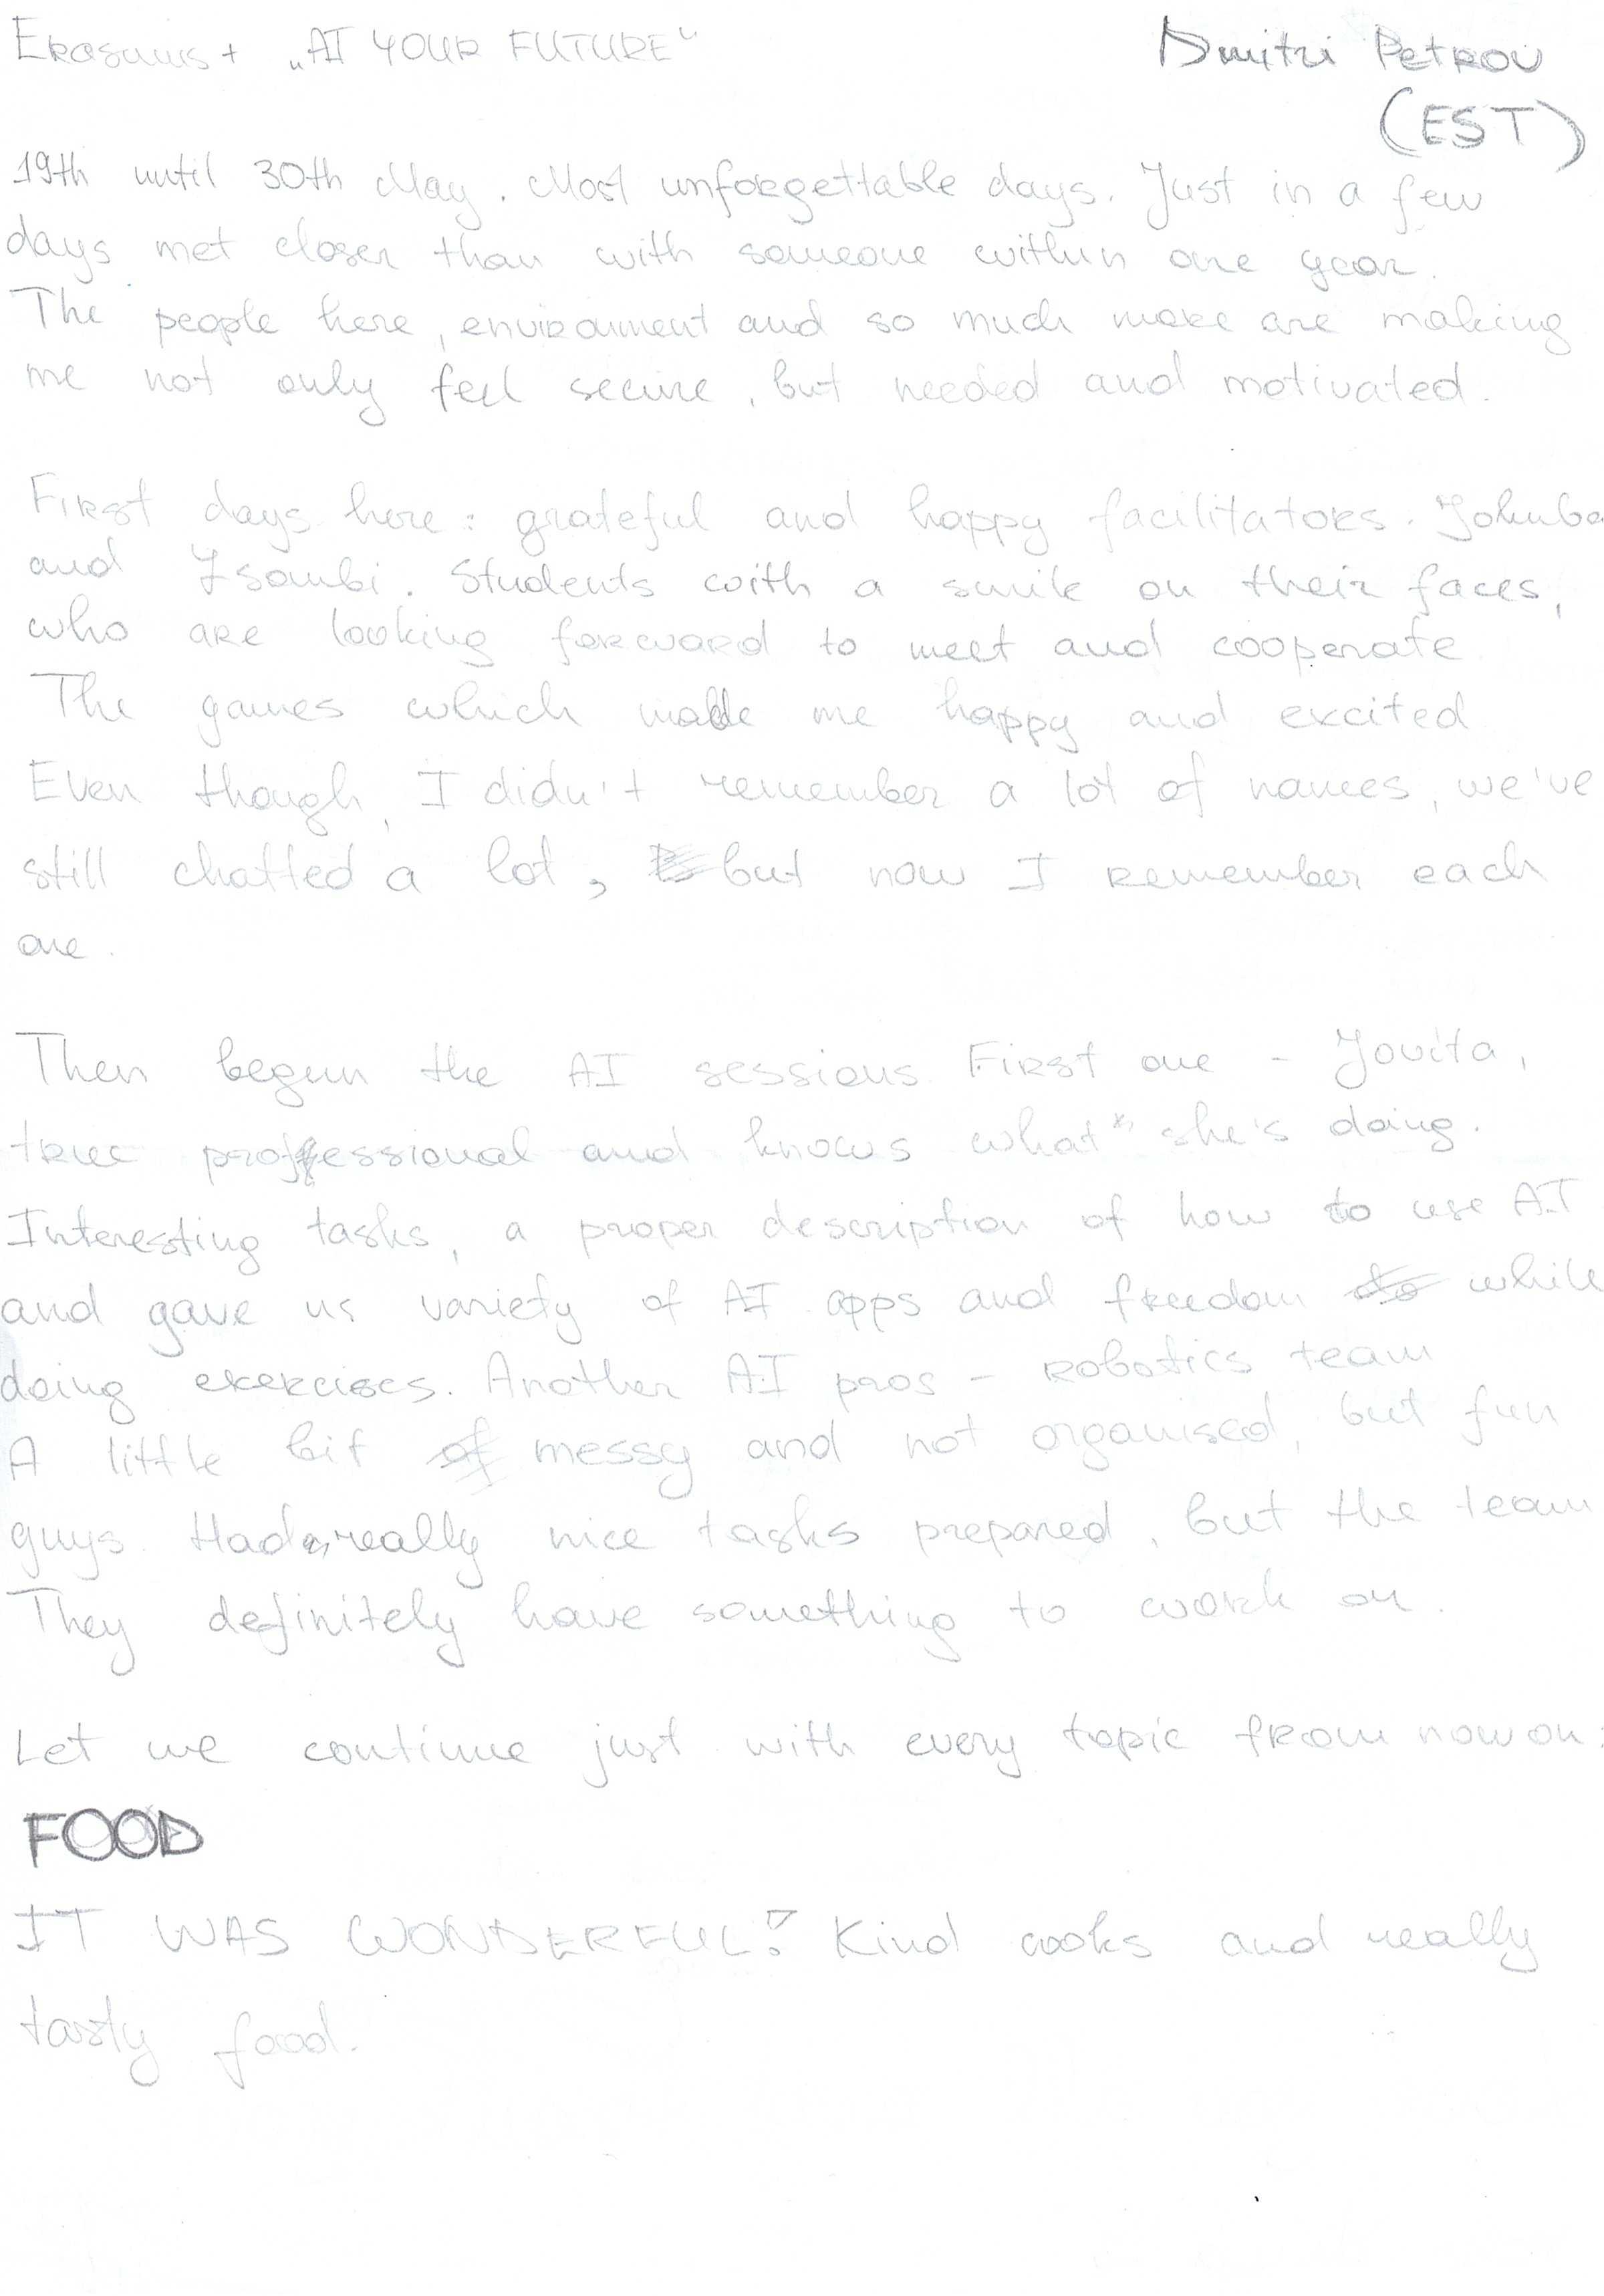 Erasmus+ „AI YOUR FUTURE“ Dmitri Petrov
(EST)
19th until 30th May. Most unforgettable days. Just in a few
days met closer than with someone within one year.
The people here, environment and so much more are making
me not only feel secure, but needed and motivated.
First days here: grateful and happy facilitators.
and Students with a smile on their faces,
who are looking forward to meet and cooperate
The games which made me happy and excited
Even though, I didn't remember a lot of names, we've
still chatted a lot, but now I remember each
one.
Then begun the AI sessions. First one - Jovita,
true professional and knows what she's doing.
Interesting tasks, a proper description of how to use AI
and gave us variety of AI apps and freedom while
doing exercises. Another AI pros - robotics team
A little bit messy and not organised, but fun
guys. Had really nice tasks prepared, but the team
They definitely have something to work on.
Let me continue just with every topic from now on:
FOOD
IT WAS WONDERFUL! Kind cooks and really
tasty food.